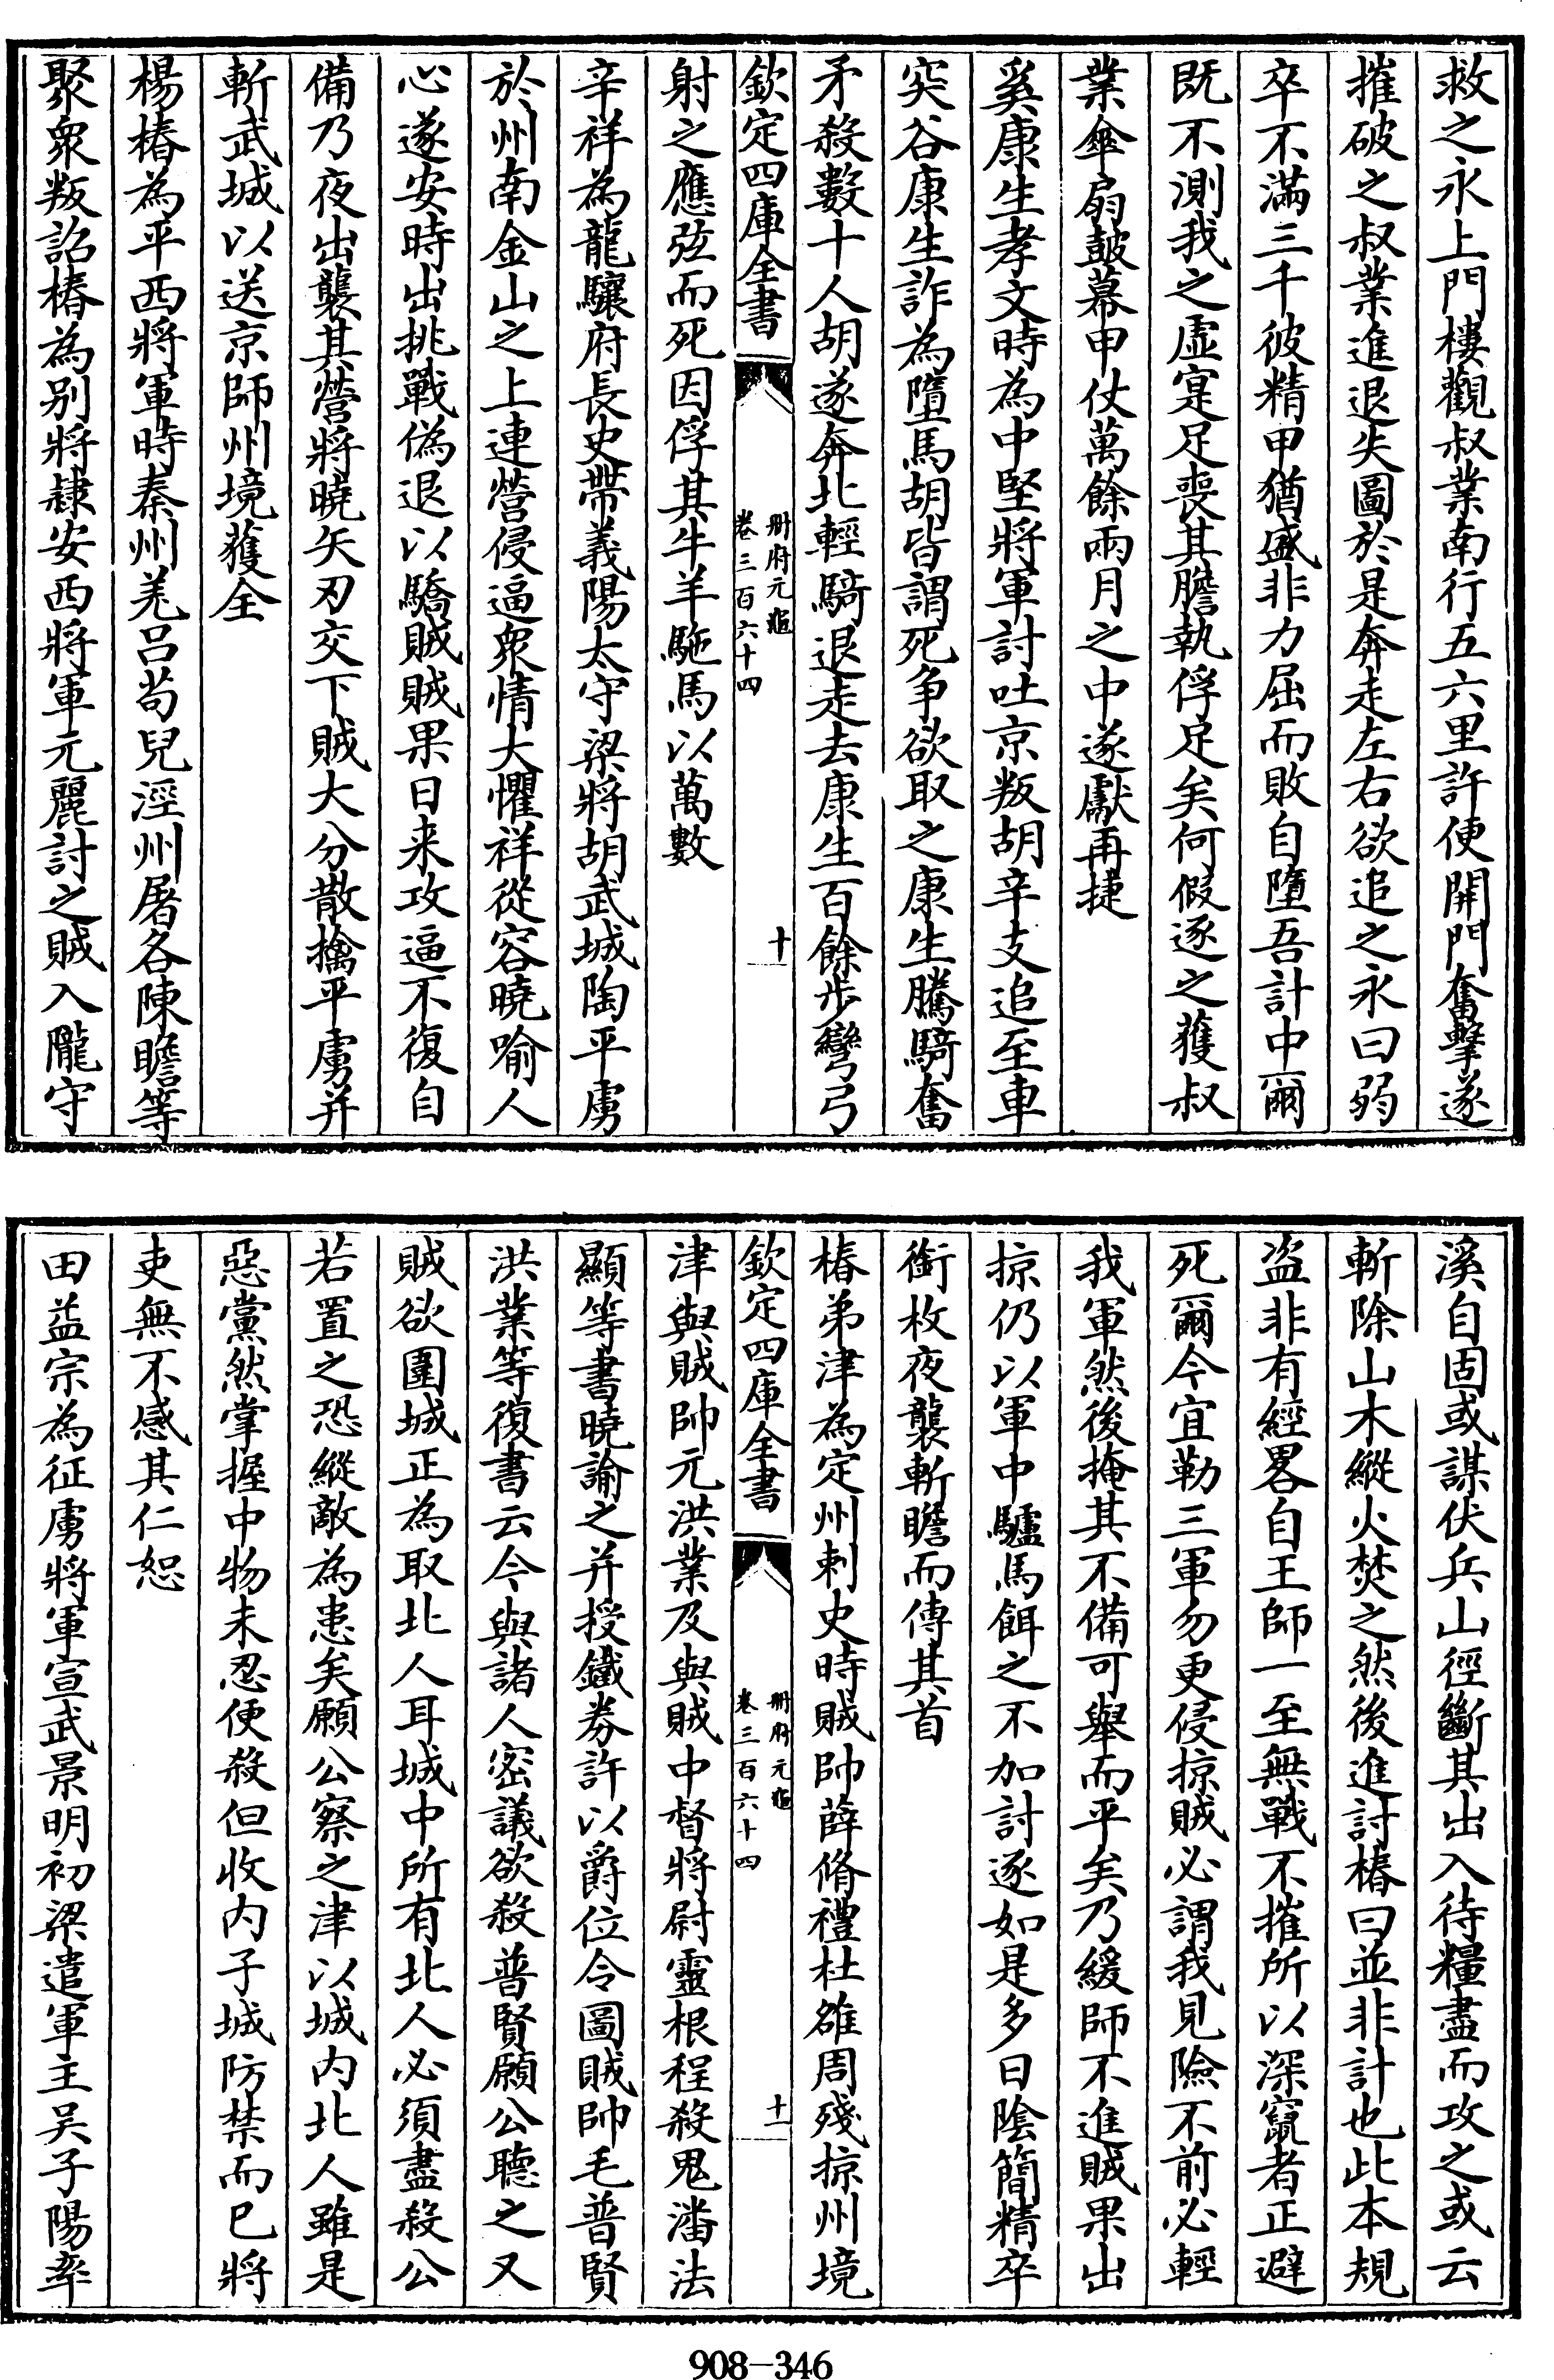 救之永上門樓觀叔業南行五六里許便開門奮擊遂
摧破之叔業進退失圖於是奔走左右欲追之永曰弱
卒不滿三千彼精甲猶盛非力屈而敗自墮吾計中爾
既不測我之虛寔足喪其膽執俘足矣何假逐之獲叔
業傘扇皷幕甲仗萬餘兩月之中遂獻再捷
奚康生孝文時為中堅將軍討吐京叛胡辛支追至車
突谷康生詐為墮馬胡皆謂死争欲取之康生騰騎奮
矛殺數十人胡遂奔北輕騎退走去康生百餘步彎弓
欽定四庫全書
册府元龜
卷三百六十四
十
射之應弦而死因俘其牛羊駞馬以萬數
辛祥為龍驤府長史帶義陽太守梁將胡武城陶平虜
於州南金山之上連營侵逼衆情大懼祥從容曉喻人
心遂安時出挑戰偽退以驕賊賊果日来攻逼不復自
備乃夜出襲其營將曉矢刃交下賊大分散擒平虜并
斬武城以送京師州境獲全
楊椿為平西將軍時秦州羌吕茍兒涇州屠各陳瞻等
聚衆叛詔椿為别將隸安西將軍元麗討之賊入隴守
溪自固或謀伏兵山徑斷其出入待糧盡而攻之或云
斬除山木縱火焚之然後進討椿曰並非計也此本規
盗非有經畧自王師一至無戰不摧所以深竄者正避
死爾今宜勒三軍勿更侵掠賊必謂我見險不前必輕
我軍然後掩其不備可舉而平矣乃緩師不進賊果出
掠仍以軍中驢馬餌之不加討逐如是多日陰簡精卒
銜枚夜襲斬瞻而傳其首
椿弟津為定州刺史時賊帥薛脩禮杜雒周殘掠州境
欽定四庫全書
册府元龜
卷三百六十四
十一
津與賊帥元洪業及與賊中督將尉靈根程殺鬼潘法
顯等書曉諭之并授鐵券許以爵位令圖賊帥毛普賢
洪業等復書云今與諸人密議欲殺普賢願公聽之又
賊欲圍城正為取北人耳城中所有北人必須盡殺公
若置之恐縱敵為患矣願公察之津以城内北人雖是
惡黨然掌握中物未忍便殺但收内子城防禁而已將
吏無不感其仁恕
田益宗為征虜將軍宣武景明初梁遣軍主吴子陽率
908-346